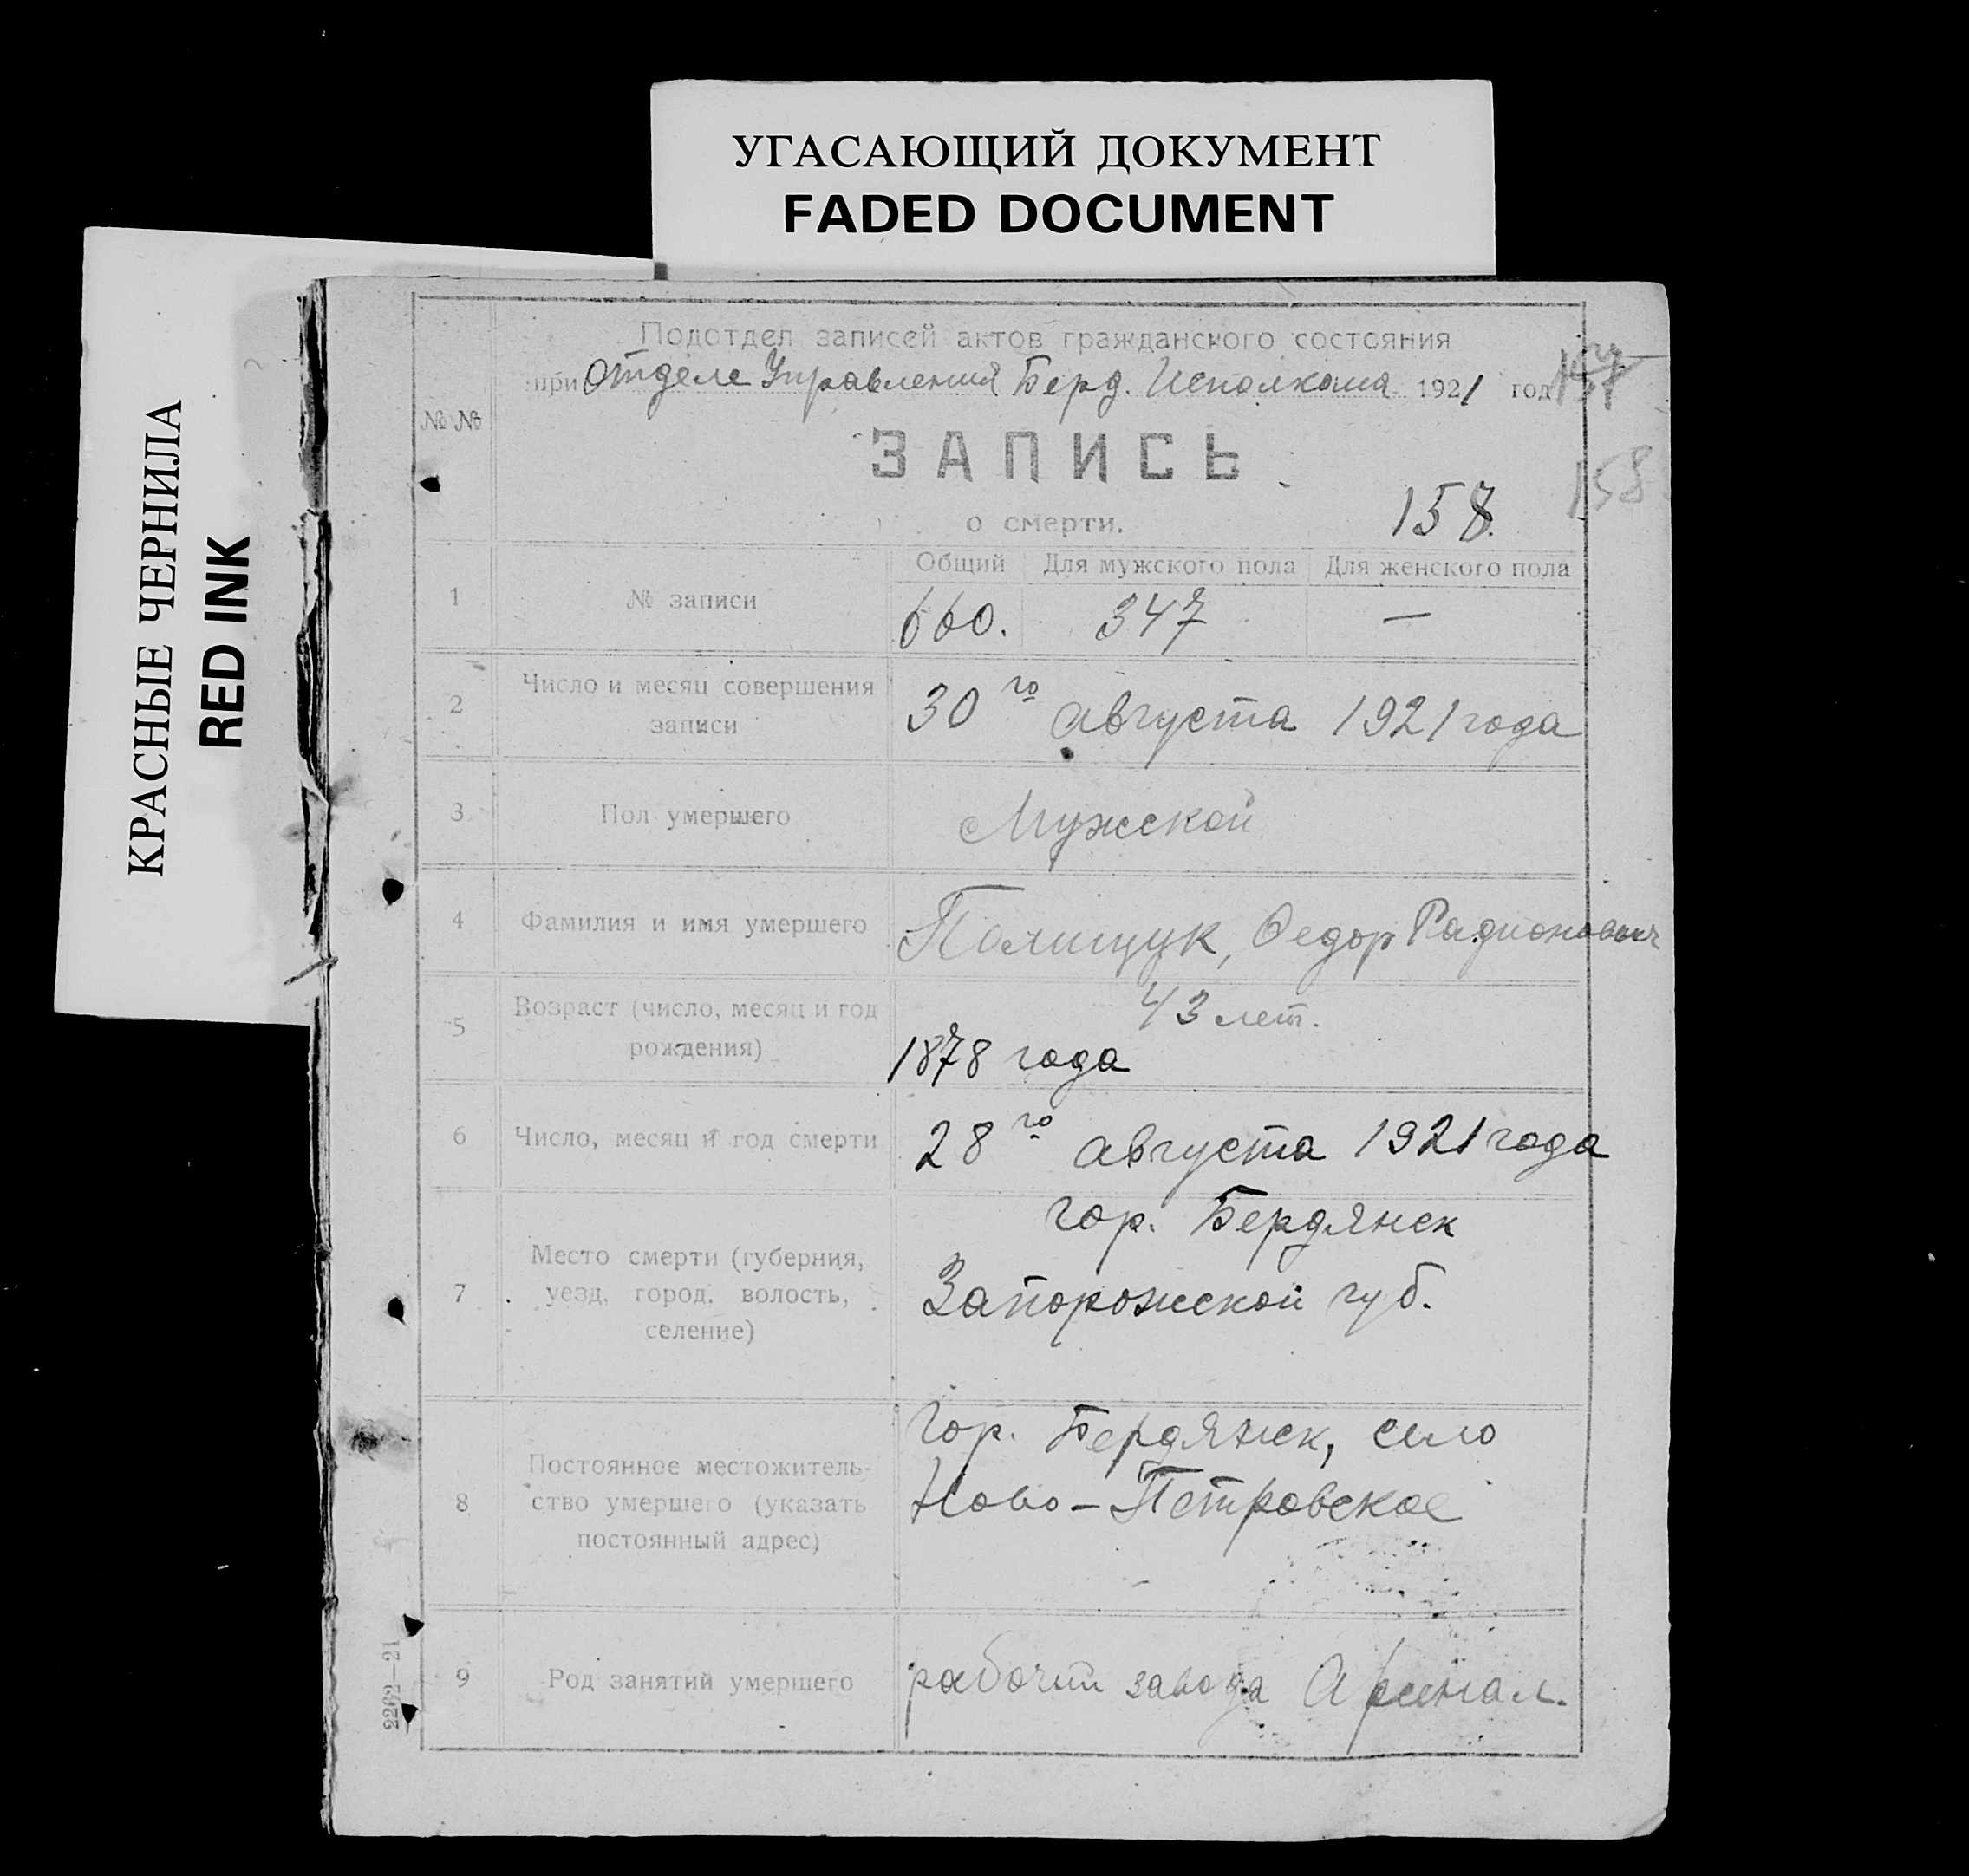 УГАСАЮЩИЙ ДОКУМЕНТ
FADED DOCUMENT
КРАСНЫЕ ЧЕРНИЛА
RED INK
Подотдел записей актов гражданского состояния
при Отделе Управления Берд. Исполкома 1921 год
157
№ №
ЗАПИСЬ
158
о смерти.
158.
Общий Для мужского пола Для женского пола
1 № записи 660. 347 —
2 Число и месяц совершения
записи
30го августа 1921 года
3 Пол умершего Мужской
4 Фамилия и имя умершего Полищук, Федор Радионович
5 Возраст (число, месяц и год
рождения)
43 лет.
1878 года
6 Число, месяц и год смерти 28го августа 1921 года
7 Место смерти (губерния,
уезд, город, волость,
селение)
гор. Бердянск
Запорожской губ.
8 Постоянное местожитель-
ство умершего (указать
постоянный адрес)
Гор. Бердянск, село
Ново-Петровское
9 Род занятий умершего рабочий завода Арсенал.
2262—21